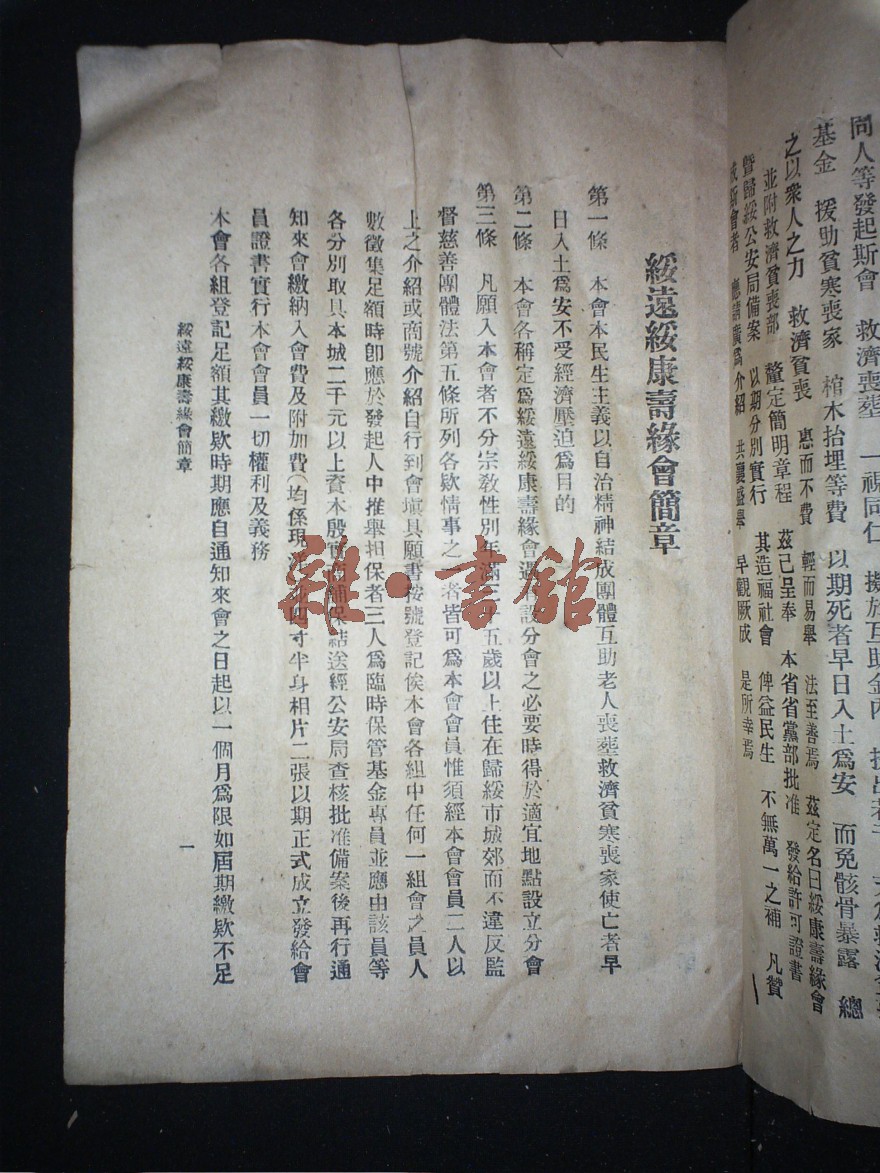 同人等發起斯會 救濟喪塟 一視同仁 擬於互助金內
基金 援助貧寒喪家 棺木抬埋等費 以期死者早日入土爲安 而免骸骨暴露 總
之以衆人之力 救濟貧喪 惠而不費 輕而易舉 法至善焉 茲定名曰綏康壽緣會
並附救濟貧喪部 釐定簡明章程 茲已呈奉 本省省黨部批准 發給許可證書
暨歸綏公安局備案 以期分別實行 其造福社會 俾益民生 不無萬一之補 凡贊
成斯會者 應請廣爲介紹 共襄盛舉 早觀厥成 是所幸焉
綏遠綏康壽緣會簡章
第一條 本會本民生主義以自治精神結成團體互助老人喪塟救濟貧寒喪家使亡者早
日入土爲安不受經濟壓迫爲目的
第二條 本會各稱定爲綏遠綏康壽緣會遇有設分會之必要時得於適宜地點設立分會
第三條 凡願入本會者不分宗敎性別年滿三十五歲以上住在歸綏市城郊而不違反監
督慈善團體法第五條所列各欵情事之一者皆可爲本會會員惟須經本會會員二人以
上之介紹或商號介紹自行到會塡具願書按號登記俟本會各組中任何一組會之員人
數徵集足額時卽應於發起人中推舉担保者三人爲臨時保管基金專員並應由該員等
各分別取具本城二千元以上資本殷實商鋪保結送經公安局查核批准備案後再行通
知來會繳納入會費及附加費(均係現洋)並四寸半身相片二張以期正式成立發給會
員證書實行本會會員一切權利及義務
本會各組登記足額其繳欵時期應自通知來會之日起以一個月爲限如屆期繳欵不足
綏遠綏康壽緣會簡章
一
雜·書館